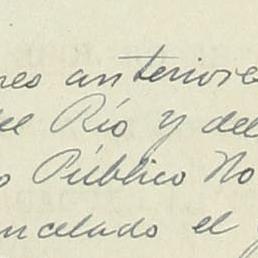 res anteriore
del Río y del
o Público No
ncelado el